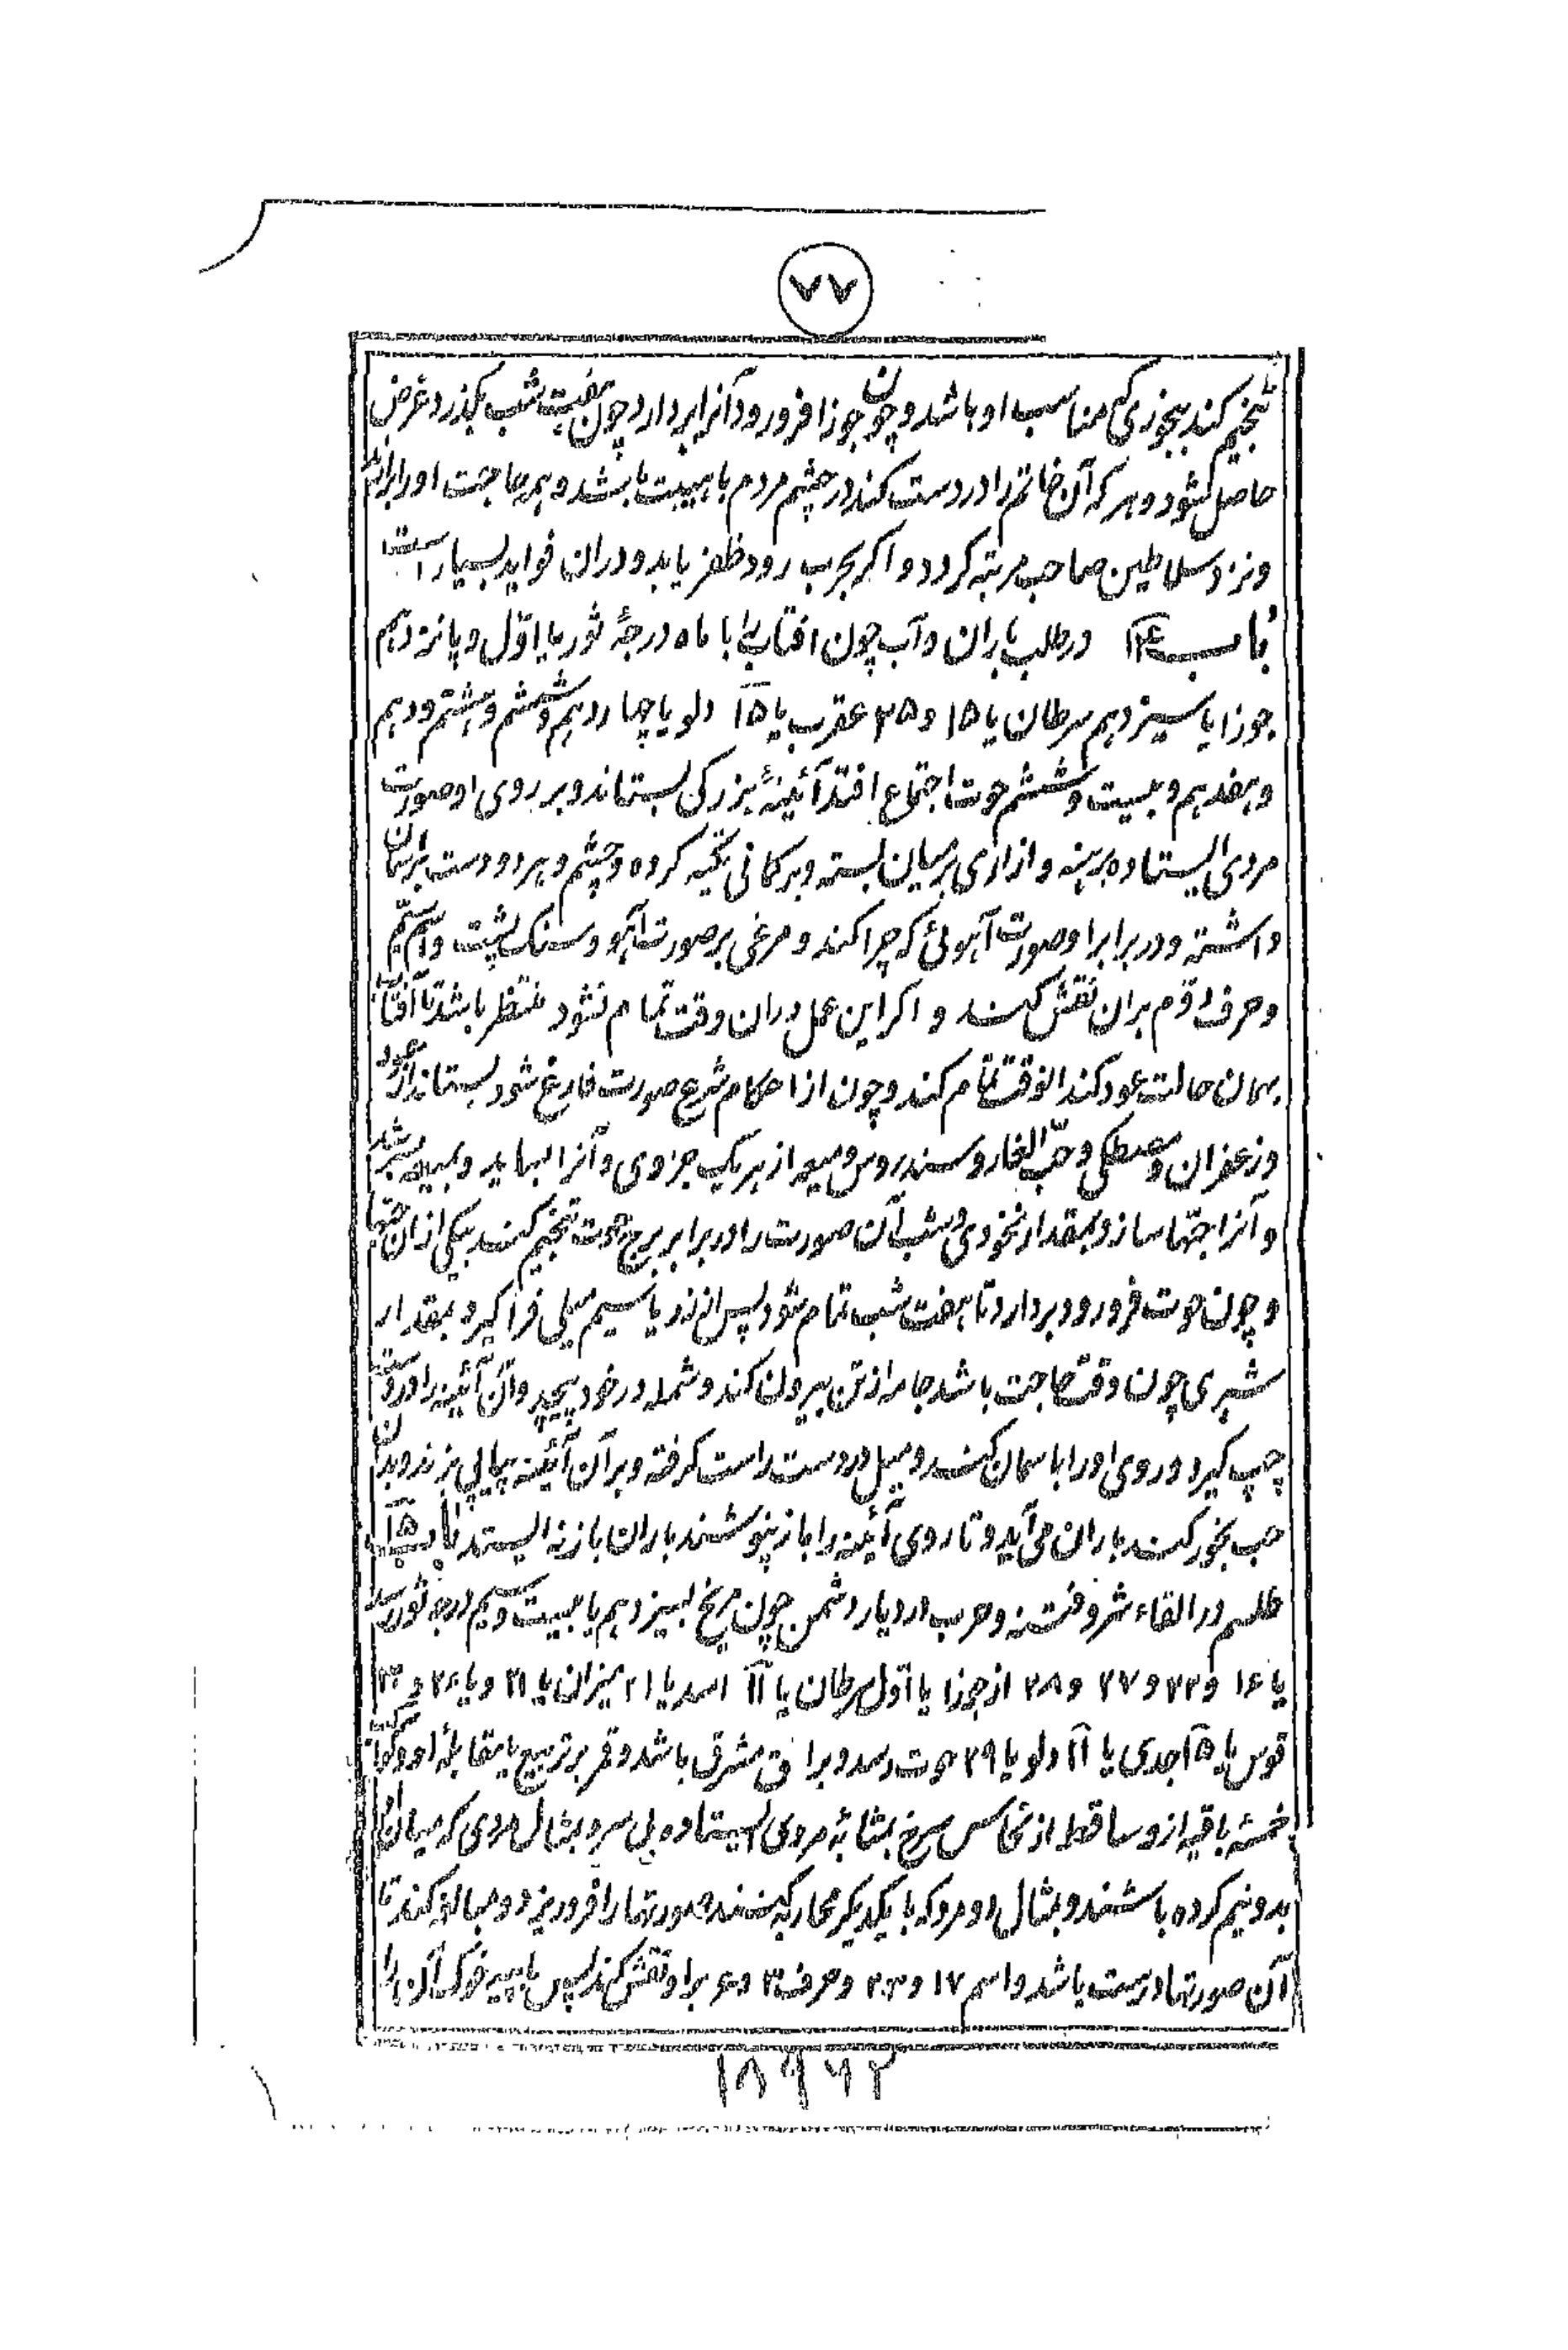 ۷۷
تنجیم کند ببخوری که مناسب او باشد و چون جوزا فرو رود آنرا بردارد چون هفت شب بگذرد غرض
حاصل شود و هر که آن خاتم را در دست کند در چشم مردم با هیبت باشد و هر حاجت او را
و نزد سلاطین صاحب مرتبه گردد و اگر بحرب رود ظفر یابد و دران فواید بسیار است
باب ۱۴ در طلب باران و آب چون افتاب را با ماه درجۀ ثور یا اوّل و پانزدهم
جوزا یا سیزدهم سرطان یا ۱۵ و ۲۵ عقرب یا ۱۵ دلو یا چهاردهم و ششم و هشتم و دهم
و هفدهم و بیست و ششم حوت اجتماع افتد آئینۀ بزرکی بستاند و بر روی او صورت
مردی ایستاده برهنه و ازاری بر میان بسته و بر کمانی تکیه کرده و چشم و هر دو دست بر اسمان
داشته و در برابر او صورت آهوئی که چرا کند و مرغی بر صورت آهو و سنک پشت و اسم
و حرف دوم بران نقش کنند و اکر این عمل دران وقت تمام نشود منتظر باشد تا آفتاب
بهمان حالت عود کند انوقت تمام کند و چون از احکام شرع صورت فارغ شود بستاند از عود
و زعفران و مصطکی و حبّ الغار و سندروس و میعه از هر یک جزوی و آنرا بساید و بمیعه
و آنرا حبّها سازد بمقدار نخودی و شب آن صورت را در برابر برج حوت تنجیم کنند بیکی از ان حبّها
و چون حوت فرو رود بردارد تا هفت شب تمام شود پس از زر یا سیم میلی فرا گیرد بمقدار
شبری چون وقت حاجت باشد جامه از تن بیرون کند و شمله در خود پیچید و آن آئینه را در دست
چپ گیرد و روی او را با سمان کند و میل در دست راست کرفته و بر آن آئینه پیاپی بزند و بدان
حب بخور کنند باران می آید و تا روی آئینه را باز نپوشند باران باز نه ایستد باب ۱۵
طلسم در القاء شر و فتنه و حرب در دیار دشمن چون مریخ بسیزدهم یا بیست و یکم درجه ثور رسد
یا ۱۶ و ۲۳ و ۲۷ و ۲۸ از جوزا یا اوّل سرطان یا ۱۱ اسد یا ۲۱ میزان یا ۲۱ و یا ۲۶ و ۳۰
قوس یا ۱۵ جدی یا ۱۱ دلو یا ۲۹ حوت رسد و بر افق مشرق باشد و قمر بر تربیع یا مقابلۀ او و کواکب
خمسۀ باقیه ازو ساقط از نحاس سرخ بمثابۀ مردی ایستاده بی سر و بمثال مردی که میان او
بدو نیم کرده باشند و بمثال دو مرد که با یکدیکر محاربه کنند صورتها را فرو ریزد و مبالغه کند تا
آن صورتها درست باشد و اسم ۱۷ و ۲۳ و حرف ۳ و ۶ بر او نقش کند پس با پیه خوک آن را
۱۸۹۶۲